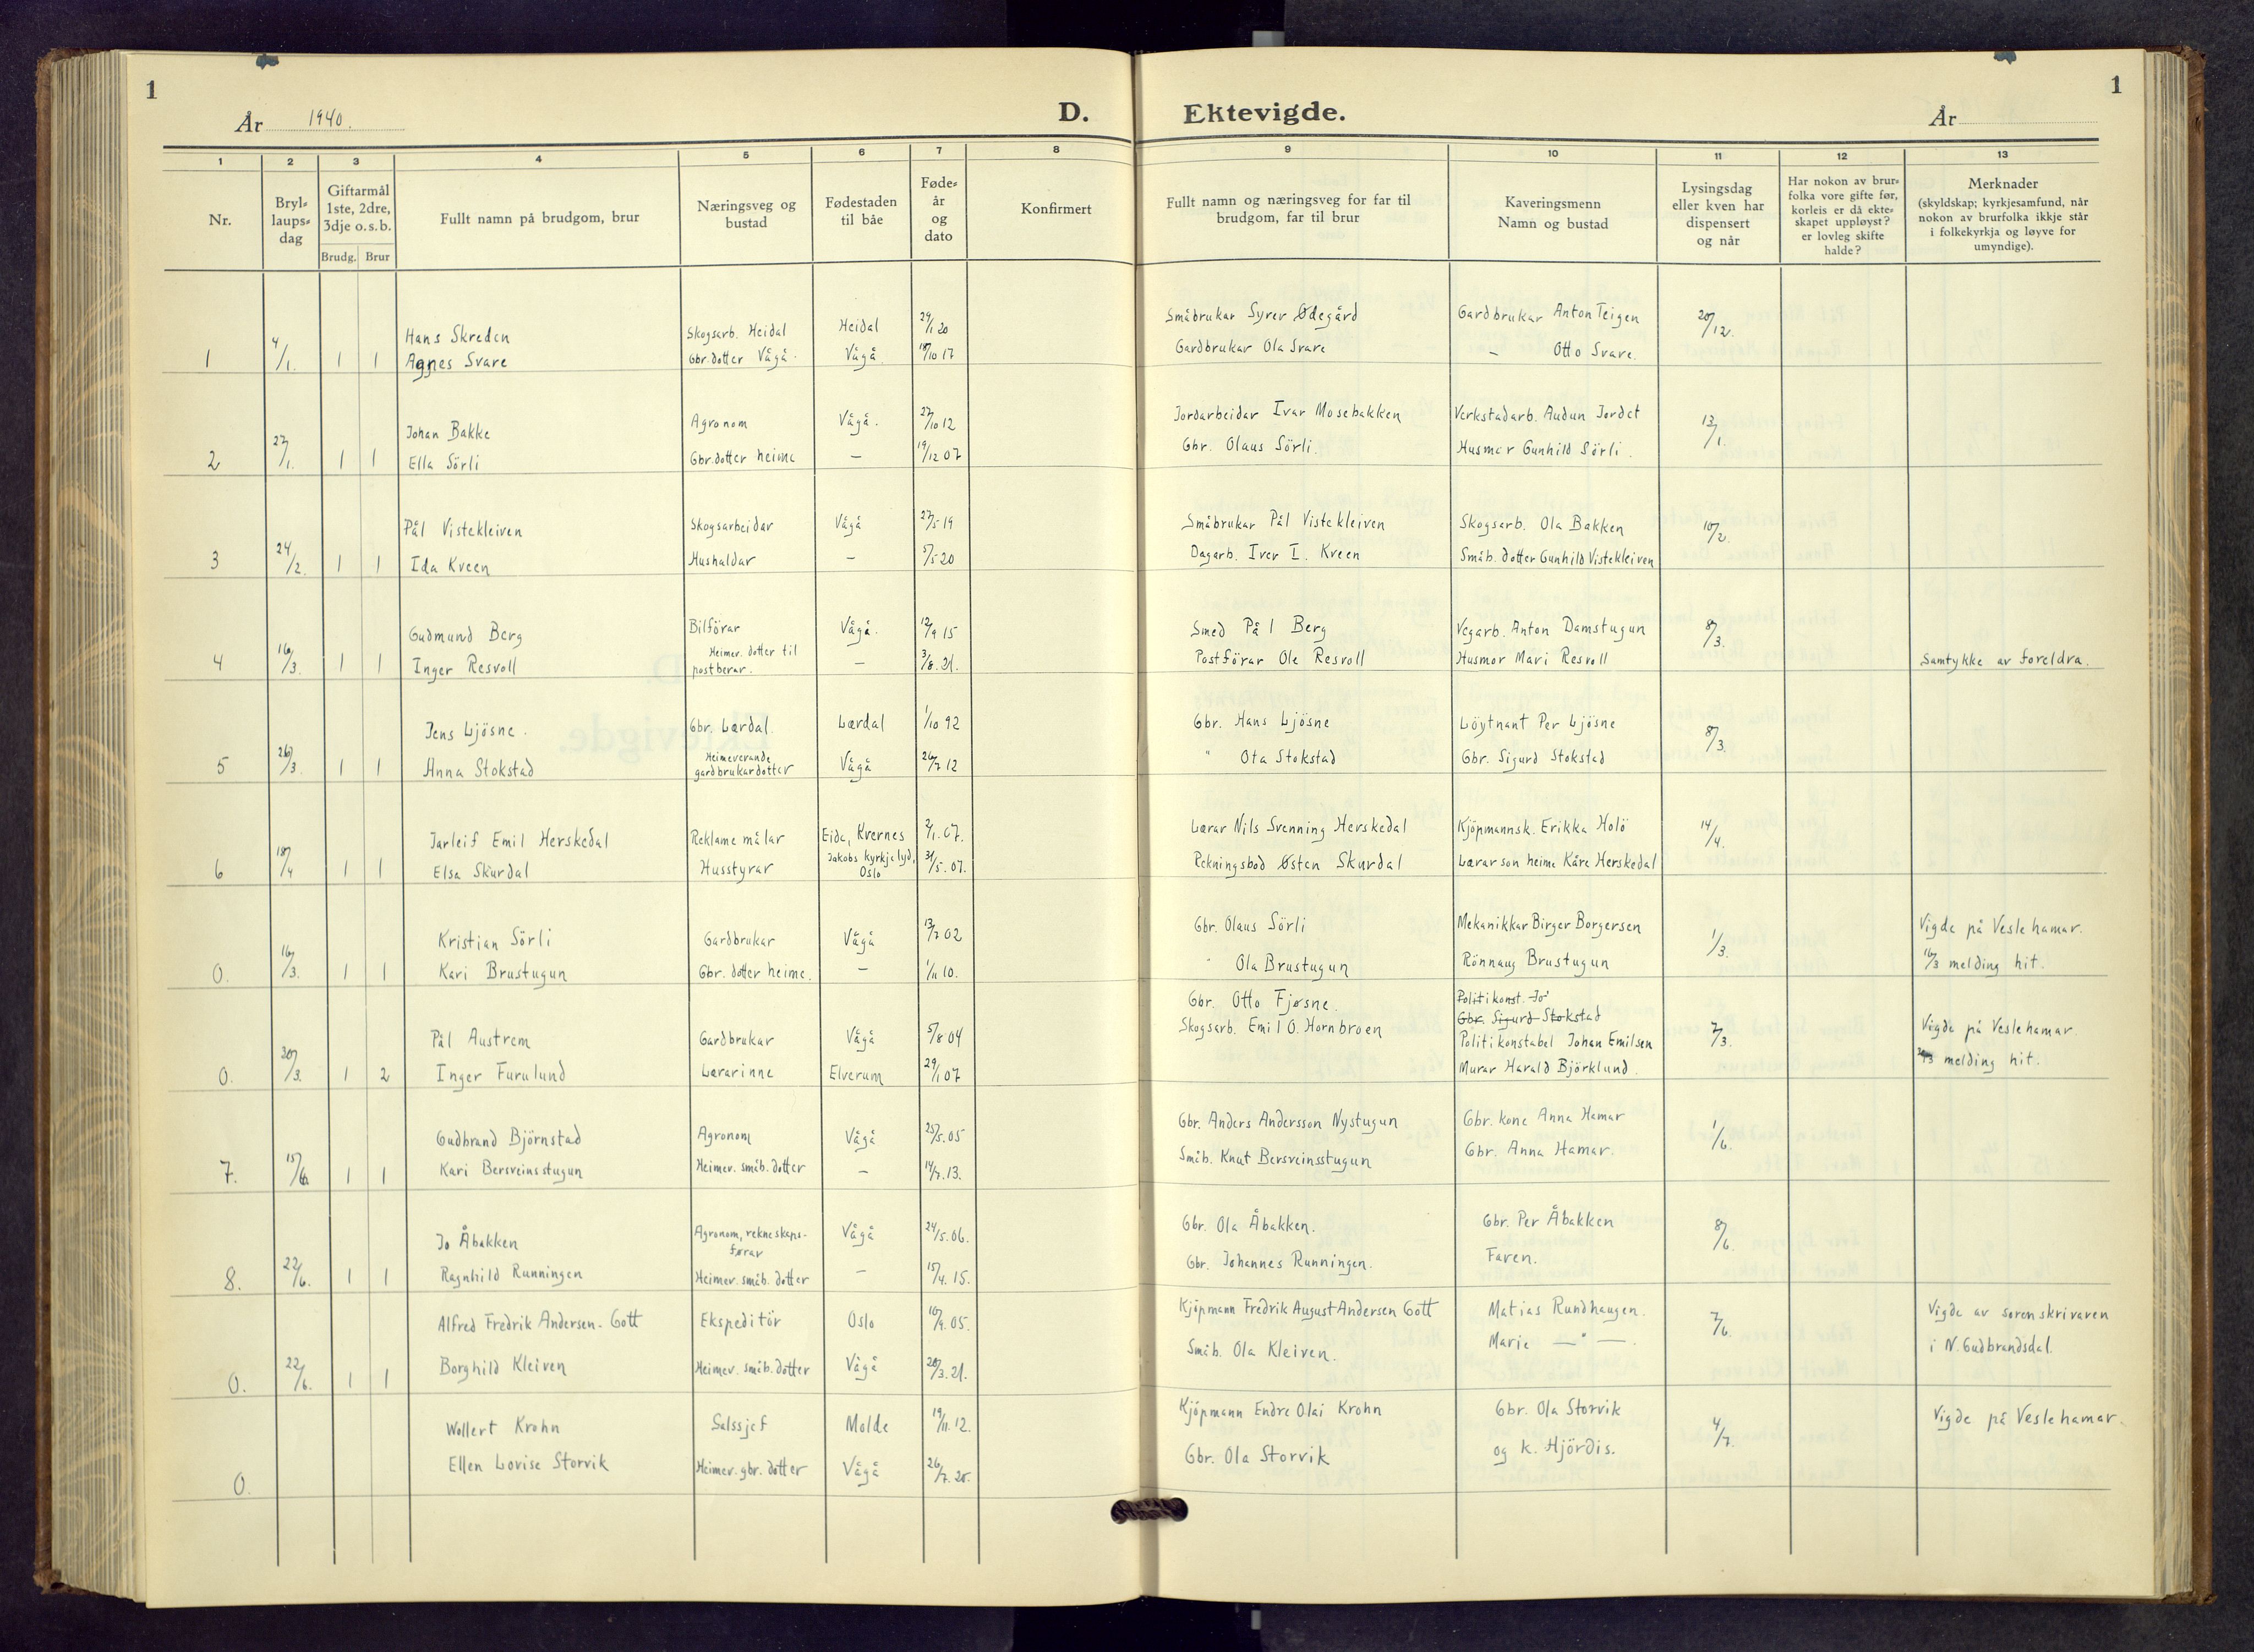 1
År 1940.
D. Ektevigde.
År
1
1 2 3 4 5 6 7 8 9 10 11 12 13
Nr.
Bryl-laups-dag
Giftarmål 1ste, 2dre, 3dje o.s.b.
Brudg. Brur
Fullt namn på brudgom, brur
Næringsveg og bustad
Fødestaden til båe
Føde-år og dato
Konfirmert
Fullt namn og næringsveg for far til brudgom, far til brur
Kaveringsmenn Namn og bustad
Lysingsdag eller kven har dispensert og når
Har nokon av brur-folka vore gifte før, korleis er då ekte-skapet uppløyst? er lovleg skifte halde?
Merknader (skyldskap; kyrkjesamfund, når nokon av brurfolka ikkje står i folkekyrkja og løyve for umyndige).
Hans Skreden Skogsarb. Heidal Heidal 29/1 20 Småbrukar Syver Ødegård Gardbrukar Anton Teigen 20/12.
1 4/1. 1 1 Agnes Svare Gbr.dotter Vågå. Vågå. 18/10 17 Gardbrukar Ola Svare — Otto Svare.
Johan Bakke Agronom Vågå. 27/10 12 Jordarbeidar Ivar Mosebakken Verkstadarb. Audun Jordet 13/1.
2 27/1. 1 1 Ella Sörli Gbr.dotter heime — 19/12 07 Gbr. Olaus Sörli. Husmor Gunhild Sörli.
Pål Vistekleiven Skogsarbeidar Vågå 27/5 19 Småbrukar Pål Vistekleiven Skogsarb. Ola Bakken 10/2.
3 24/2. 1 1 Ida Kveen Hushaldar — 5/5 20 Dagarb. Iver I. Kveen Småb. dotter Gunhild Vistekleiven
Gudmund Berg Bilförar Vågå. 12/9 15 Smed Pål Berg Vegarb. Anton Damstugun 8/3.
4 16/3. 1 1 Inger Resvoll Heimev. dotter til postberar. — 3/8. 21. Postförar Ole Resvoll Husmor Mari Resvoll Samtykke av foreldra.
Jens Ljösne. Gbr. Lærdal. Lærdal 1/10 92 Gbr. Hans Ljösne Löytnant Per Ljösne 8/3.
5 26/3. 1 1 Anna Stokstad Heimeverande gardbrukardotter Vågå 26/7 12 " Ola Stokstad Gbr. Sigurd Stokstad
Jarleif Emil Herskedal Reklamemålar Eide, Kvernes 2/1. 07. Lærar Nils Svenning Herskedal Kjöpmannsk. Erikka Holö 14/4.
6 18/4 1 1 Elsa Skurdal Husstyrar Jakobs kyrkjelyd, Oslo 31/5. 07. Rekningsbod Østen Skurdal Lærarson heime Kåre Herskedal
Kristian Sörli Gardbrukar Vågå 13/7 02 Gbr. Olaus Sörli Mekanikkar Birger Borgersen 1/3. Vigde på Veslehamar.
0. 16/3. 1 1 Kari Brustugun Gbr. dotter heime. — 1/11 10. " Ola Brustugun Rönnaug Brustugun 16/3 melding hit.
Gbr. Otto Fjøsne. Politikonst. Jo
Gbr. Sigurd Stokstad
Pål Austrem Gardbrukar Vågå 5/8 04 Skogsarb. Emil O. Hornbroen Politikonstabel Johan Emilsen 7/3. Vigde på Veslehamar
0. 30/3. 1 2 Inger Furulund Lærarinne Elverum 29/1 07 Murar Harald Björklund. melding hit.
Gudbrand Björnstad Agronom Vågå 25/5. 05 Gbr. Anders Andersson Nystugun Gbr. kone Anna Hamar 1/6.
7. 15/6. 1 1 Kari Bersveinsstugun Heimev. småb. dotter — 14/7. 13. Småb. Knut Bersveinsstugun Gbr. Anna Hamar.
Jo Åbakken Agronom, rekneskaps-førar Vågå 24/5. 06. Gbr. Ola Åbakken. Gbr. Per Åbakken 8/6.
8. 22/6. 1 1 Ragnhild Runningen Heimev. småb. dotter — 15/4. 15. Gbr. Johannes Runningen. Faren.
Alfred Fredrik Andersen-Gott Ekspeditör Oslo 16/9. 05. Kjöpmann Fredrik August Andersen Gott Matias Rundhaugen. 7/6. Vigde av sorenskrivaren
0. 22/6. 1 1 Borghild Kleiven Heimev. småb. dotter Vågå 28/3. 21. Småb. Ola Kleiven. Marie — " —. i N. Gudbrandsdal.
Wollert Krohn Salssjef Molde 19/11. 12. Kjöpmann Endre Olai Krohn Gbr. Ola Storvik 4/7. Vigde på Veslehamar.
0. Ellen Lovise Storvik Heimev. gbr. dotter Vågå 26/7. 20. Gbr. Ola Storvik og k. Hjördis.